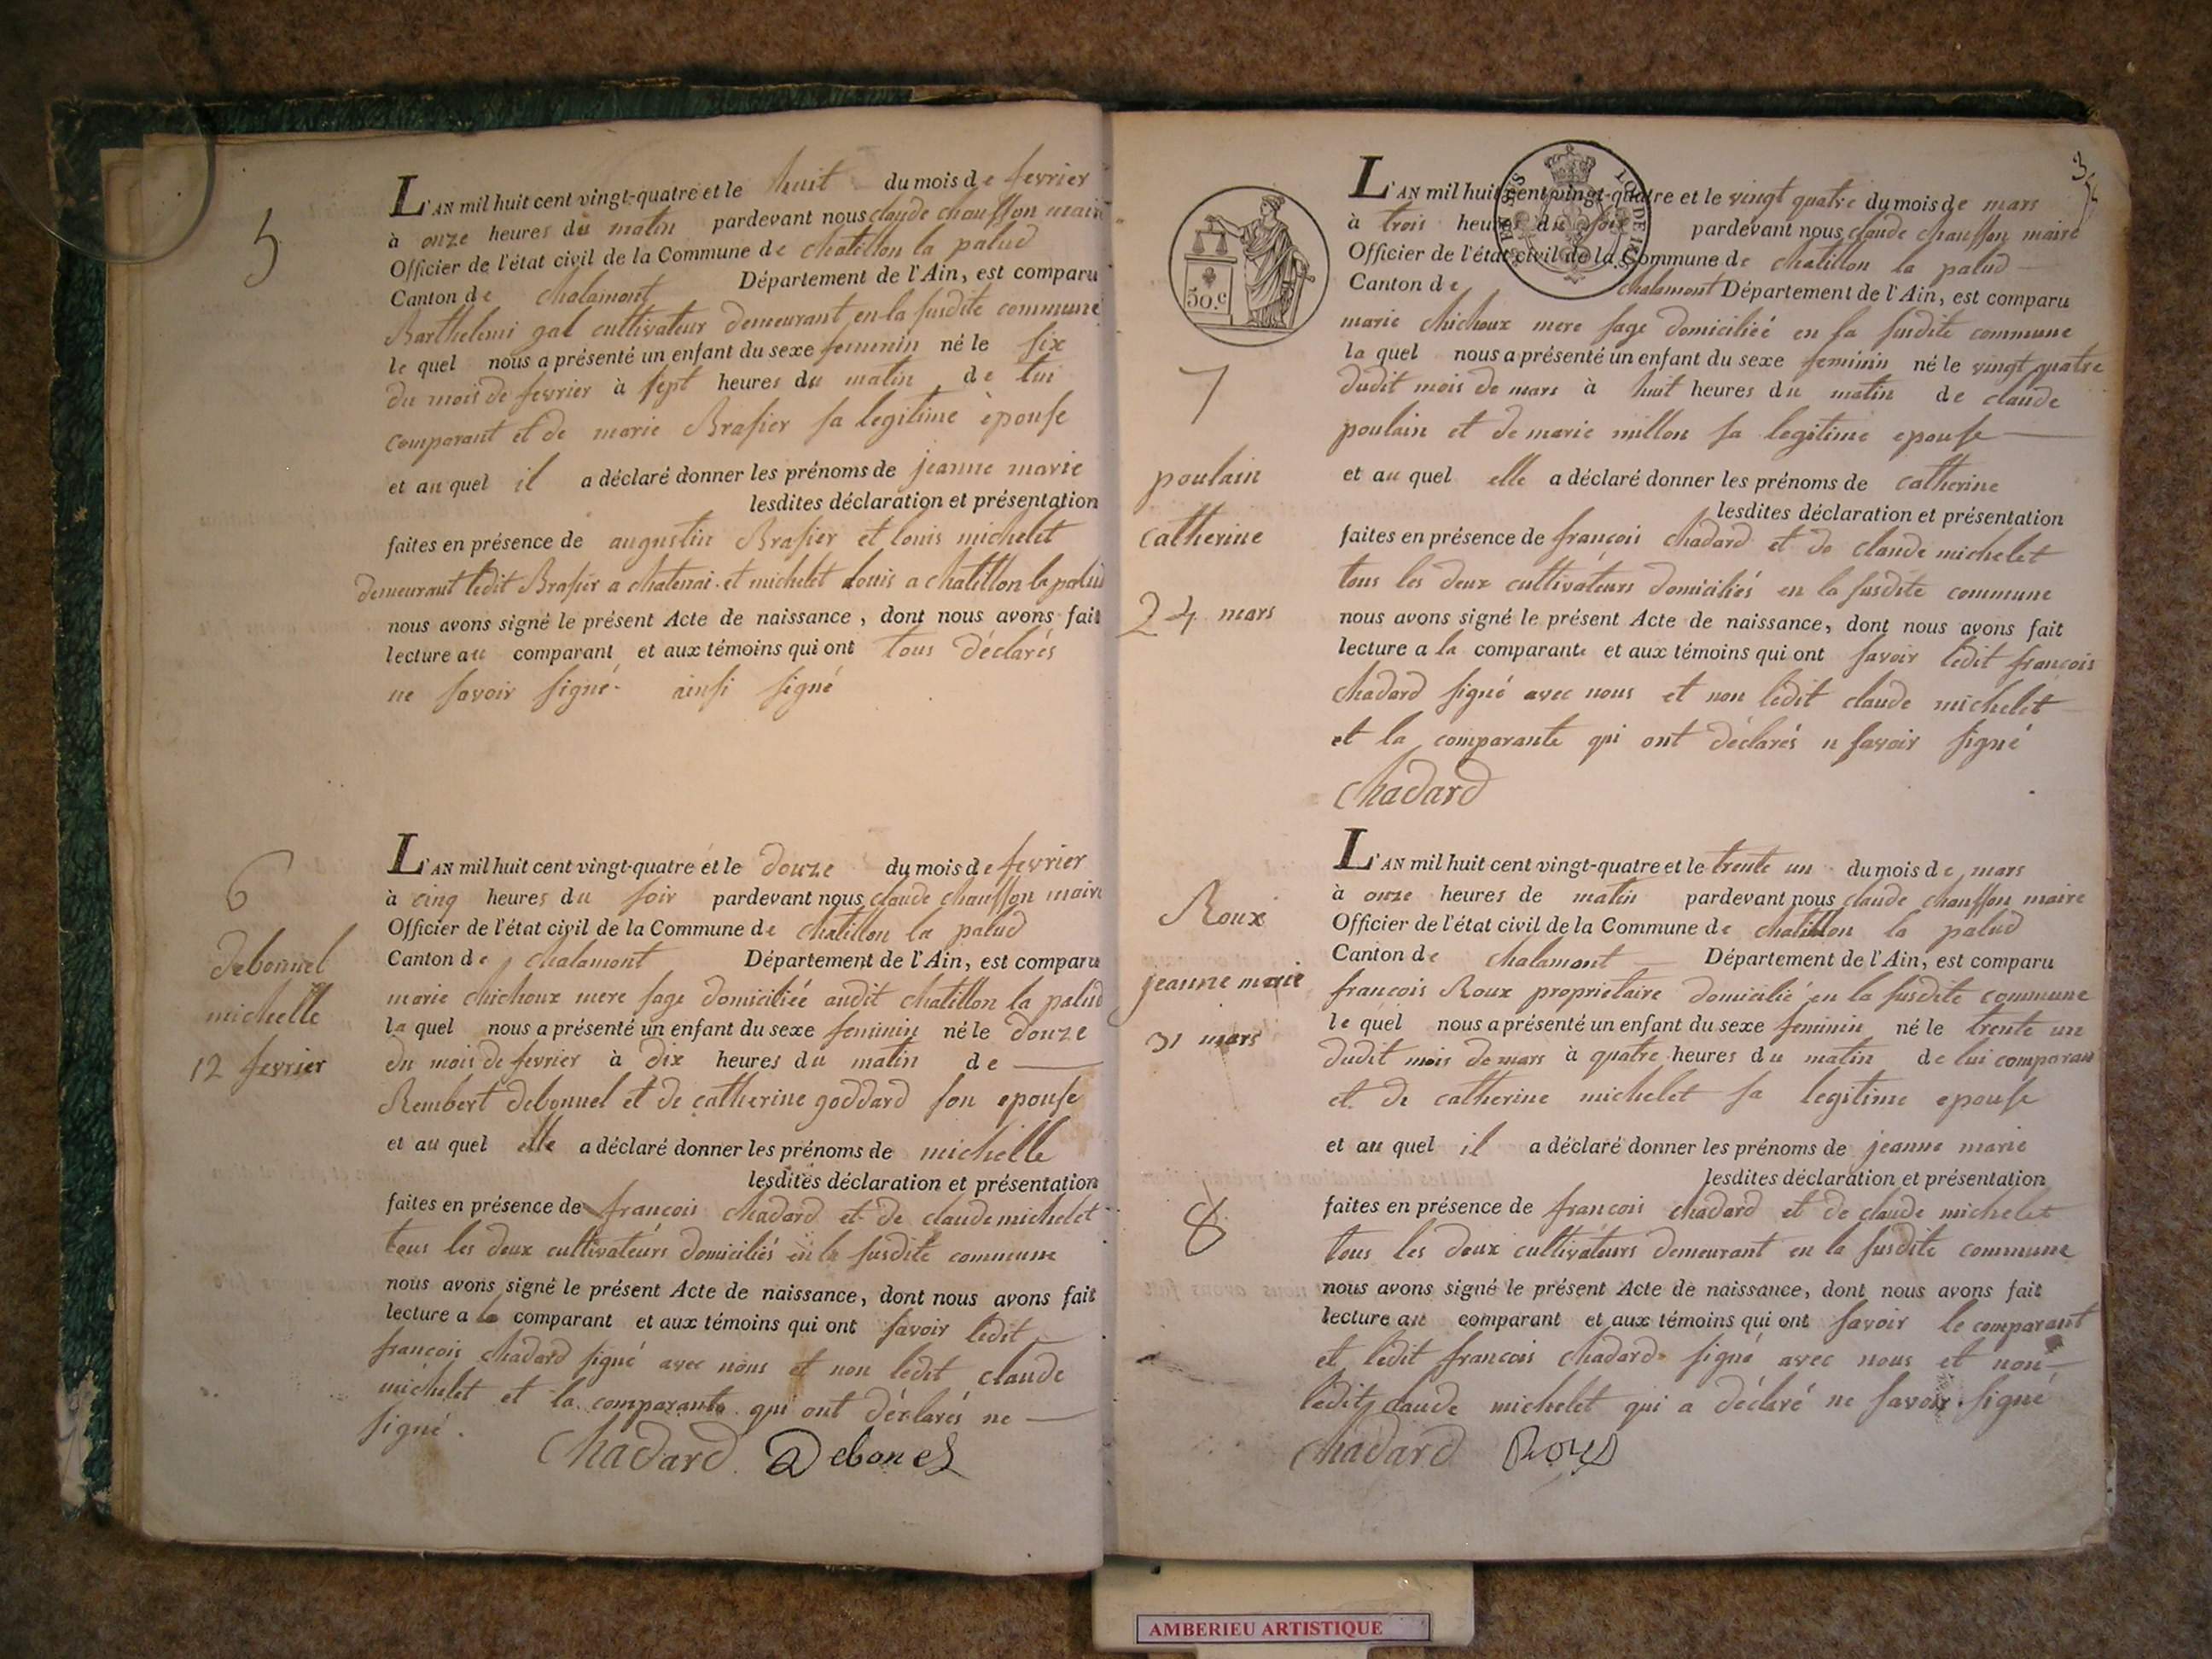 5
L'AN mil huit cent vingt-quatre et le huit du mois de fevrier
à onze heures du matin pardevant nous claude chausson maire
Officier de l'état civil de la Commune de chatillon la palud
Canton de chalamont Département de l'Ain, est comparu
Barthelemi gal cultivateur demeurant en la susdite commune
le quel nous a présenté un enfant du sexe feminin né le six
du mois de fevrier à sept heures du matin de lui
comparant et de marie Brasier sa legitime épouse
et au quel il a déclaré donner les prénoms de jeanne marie
lesdites déclaration et présentation
faites en présence de augustin Brasier et louis michelet
demeurant ledit Brasier a chatenai et michelet louis a chatillon la palud
nous avons signé le présent Acte de naissance, dont nous avons fait
lecture au comparant et aux témoins qui ont tous déclarés
ne savoir signé. ainsi signé
6
debonnel
michelle
12 fevrier
L'AN mil huit cent vingt-quatre et le douze du mois de fevrier
à cinq heures du soir pardevant nous claude chausson maire
Officier de l'état civil de la Commune de chatillon la palud
Canton de chalamont Département de l'Ain, est comparu
marie chichoux mere sage domiciliée audit chatillon la palud
la quel nous a présenté un enfant du sexe feminin né le douze
du mois de fevrier à dix heures du matin de
Rembert debonnel et de catherine goddard son epouse
et au quel elle a déclaré donner les prénoms de michelle
lesdites déclaration et présentation
faites en présence de francois chadard et de claude michelet
tous les deux cultivateurs domiciliés en la susdite commune
nous avons signé le présent Acte de naissance, dont nous avons fait
lecture a la comparant et aux témoins qui ont savoir ledit
francois chadard signé avec nous et non ledit claude
michelet et la comparante qui ont déclarés ne
signé.
Chadard Debonel
3
50.c
7
poulain
catherine
24 mars
L'AN mil huit cent vingt-quatre et le vingt quatre du mois de mars
à trois heures du soir pardevant nous claude chausson maire
Officier de l'état civil de la Commune de chatillon la palud
Canton de chalamont Département de l'Ain, est comparu
marie chichoux mere sage domiciliée en la susdite commune
la quel nous a présenté un enfant du sexe feminin né le vingt quatre
dudit mois de mars à huit heures du matin de claude
poulain et de marie millon sa legitime epouse
et au quel elle a déclaré donner les prénoms de catherine
lesdites déclaration et présentation
faites en présence de françois chadard et de claude michelet
tous les deux cultivateurs domiciliés en la susdite commune
nous avons signé le présent Acte de naissance, dont nous avons fait
lecture a la comparante et aux témoins qui ont savoir ledit françois
chadard signé avec nous et non ledit claude michelet
et la comparante qui ont déclarés n savoir signé
Chadard
Roux
jeanne marie
31 mars
8
L'AN mil huit cent vingt-quatre et le trente un du mois de mars
à onze heures de matin pardevant nous claude chausson maire
Officier de l'état civil de la Commune de chatillon la palud
Canton de chalamont Département de l'Ain, est comparu
francois Roux proprietaire domicilié en la susdite commune
le quel nous a présenté un enfant du sexe feminin né le trente un
dudit mois de mars à quatre heures du matin de lui comparant
et de catherine michelet sa legitime epouse
et au quel il a déclaré donner les prénoms de jeanne marie
lesdites déclaration et présentation
faites en présence de francois chadard et de claude michelet
tous les deux cultivateurs demeurant en la susdite commune
nous avons signé le présent Acte de naissance, dont nous avons fait
lecture au comparant et aux témoins qui ont savoir le comparant
et ledit francois chadard signé avec nous et non
ledit claude michelet qui a déclaré ne savoir signé
Chadard
AMBERIEU ARTISTIQUE